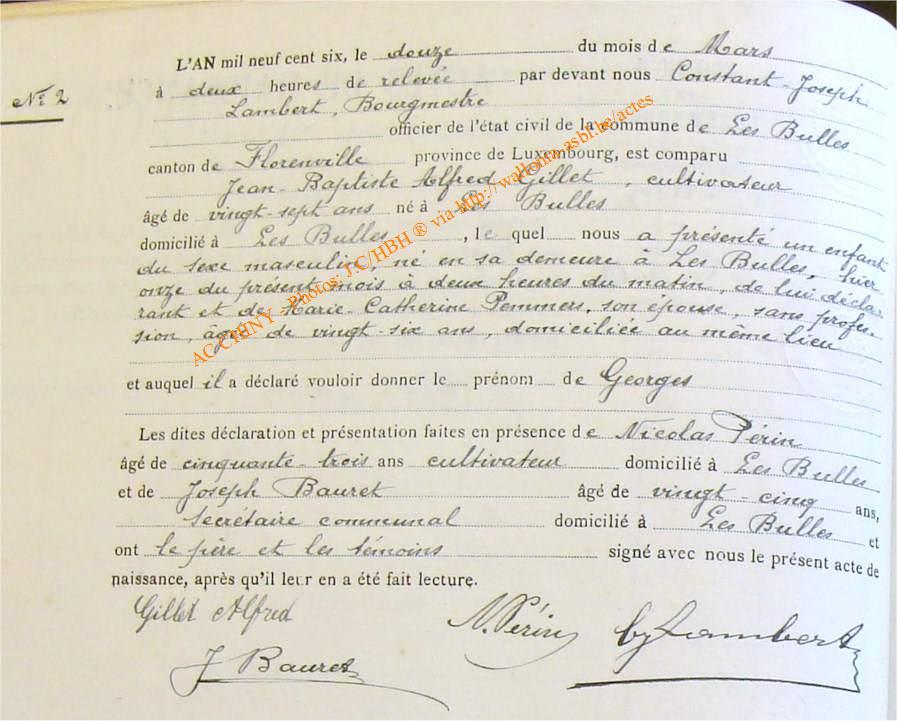 N° 2
L'AN mil neuf cent six, le douze du mois de Mars
à deux heures de relevée par devant nous Constant-Joseph
Lambert, Bourgmestre
officier de l'état civil de la commune de Les Bulles
canton de Florenville province de Luxembourg, est comparu
Jean-Baptiste Alfred Gillet, cultivateur
âgé de vingt-sept ans né à Les Bulles
domicilié à Les Bulles, lequel nous a présenté un enfant
du sexe masculin, né en sa demeure à Les Bulles, hier
onze du présent mois à deux heures du matin, de lui décla-
rant et de Marie-Catherine Pommers, son épouse, sans profes-
sion, âgée de vingt-six ans, domiciliée au même lieu
et auquel il a déclaré vouloir donner le prénom de Georges
Les dites déclaration et présentation faites en présence de Nicolas Périn
âgé de cinquante-trois ans cultivateur domicilié à Les Bulles
et de Joseph Bauret âgé de vingt-cinq ans,
secrétaire communal domicilié à Les Bulles et
ont le père et les témoins signé avec nous le présent acte de
naissance, après qu'il leur en a été fait lecture.
Gillet Alfred N. Périn Lambert
J Bauret
AC CHINY - Photos: J.C/HBH ® via http://wallonia.asbl.be/actes